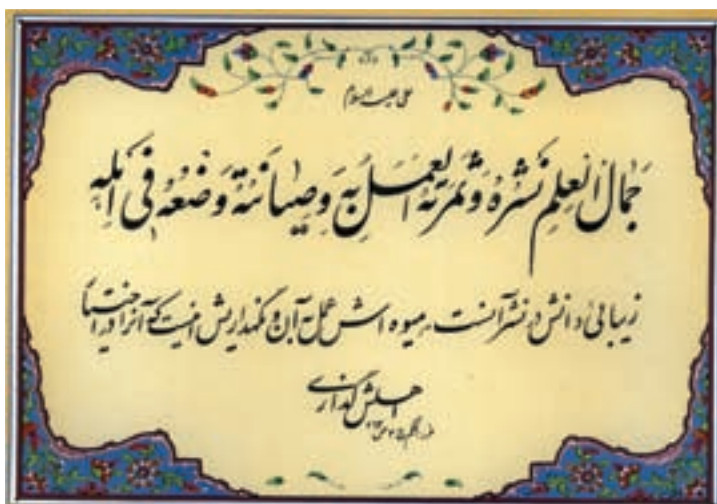 علی علیه السلام
جَمالُ العِلمِ نَشرُهُ وَ ثَمَرَتُهُ العَمَلُ بِهِ وَ صِیانَتُهُ وَضعُهُ فی اَهلِهِ
زیبائی دانش در نشر آنست، میوه اش عمل به آن و نگهداریش اینست که آنرا در اختیار
اهلش گذاری